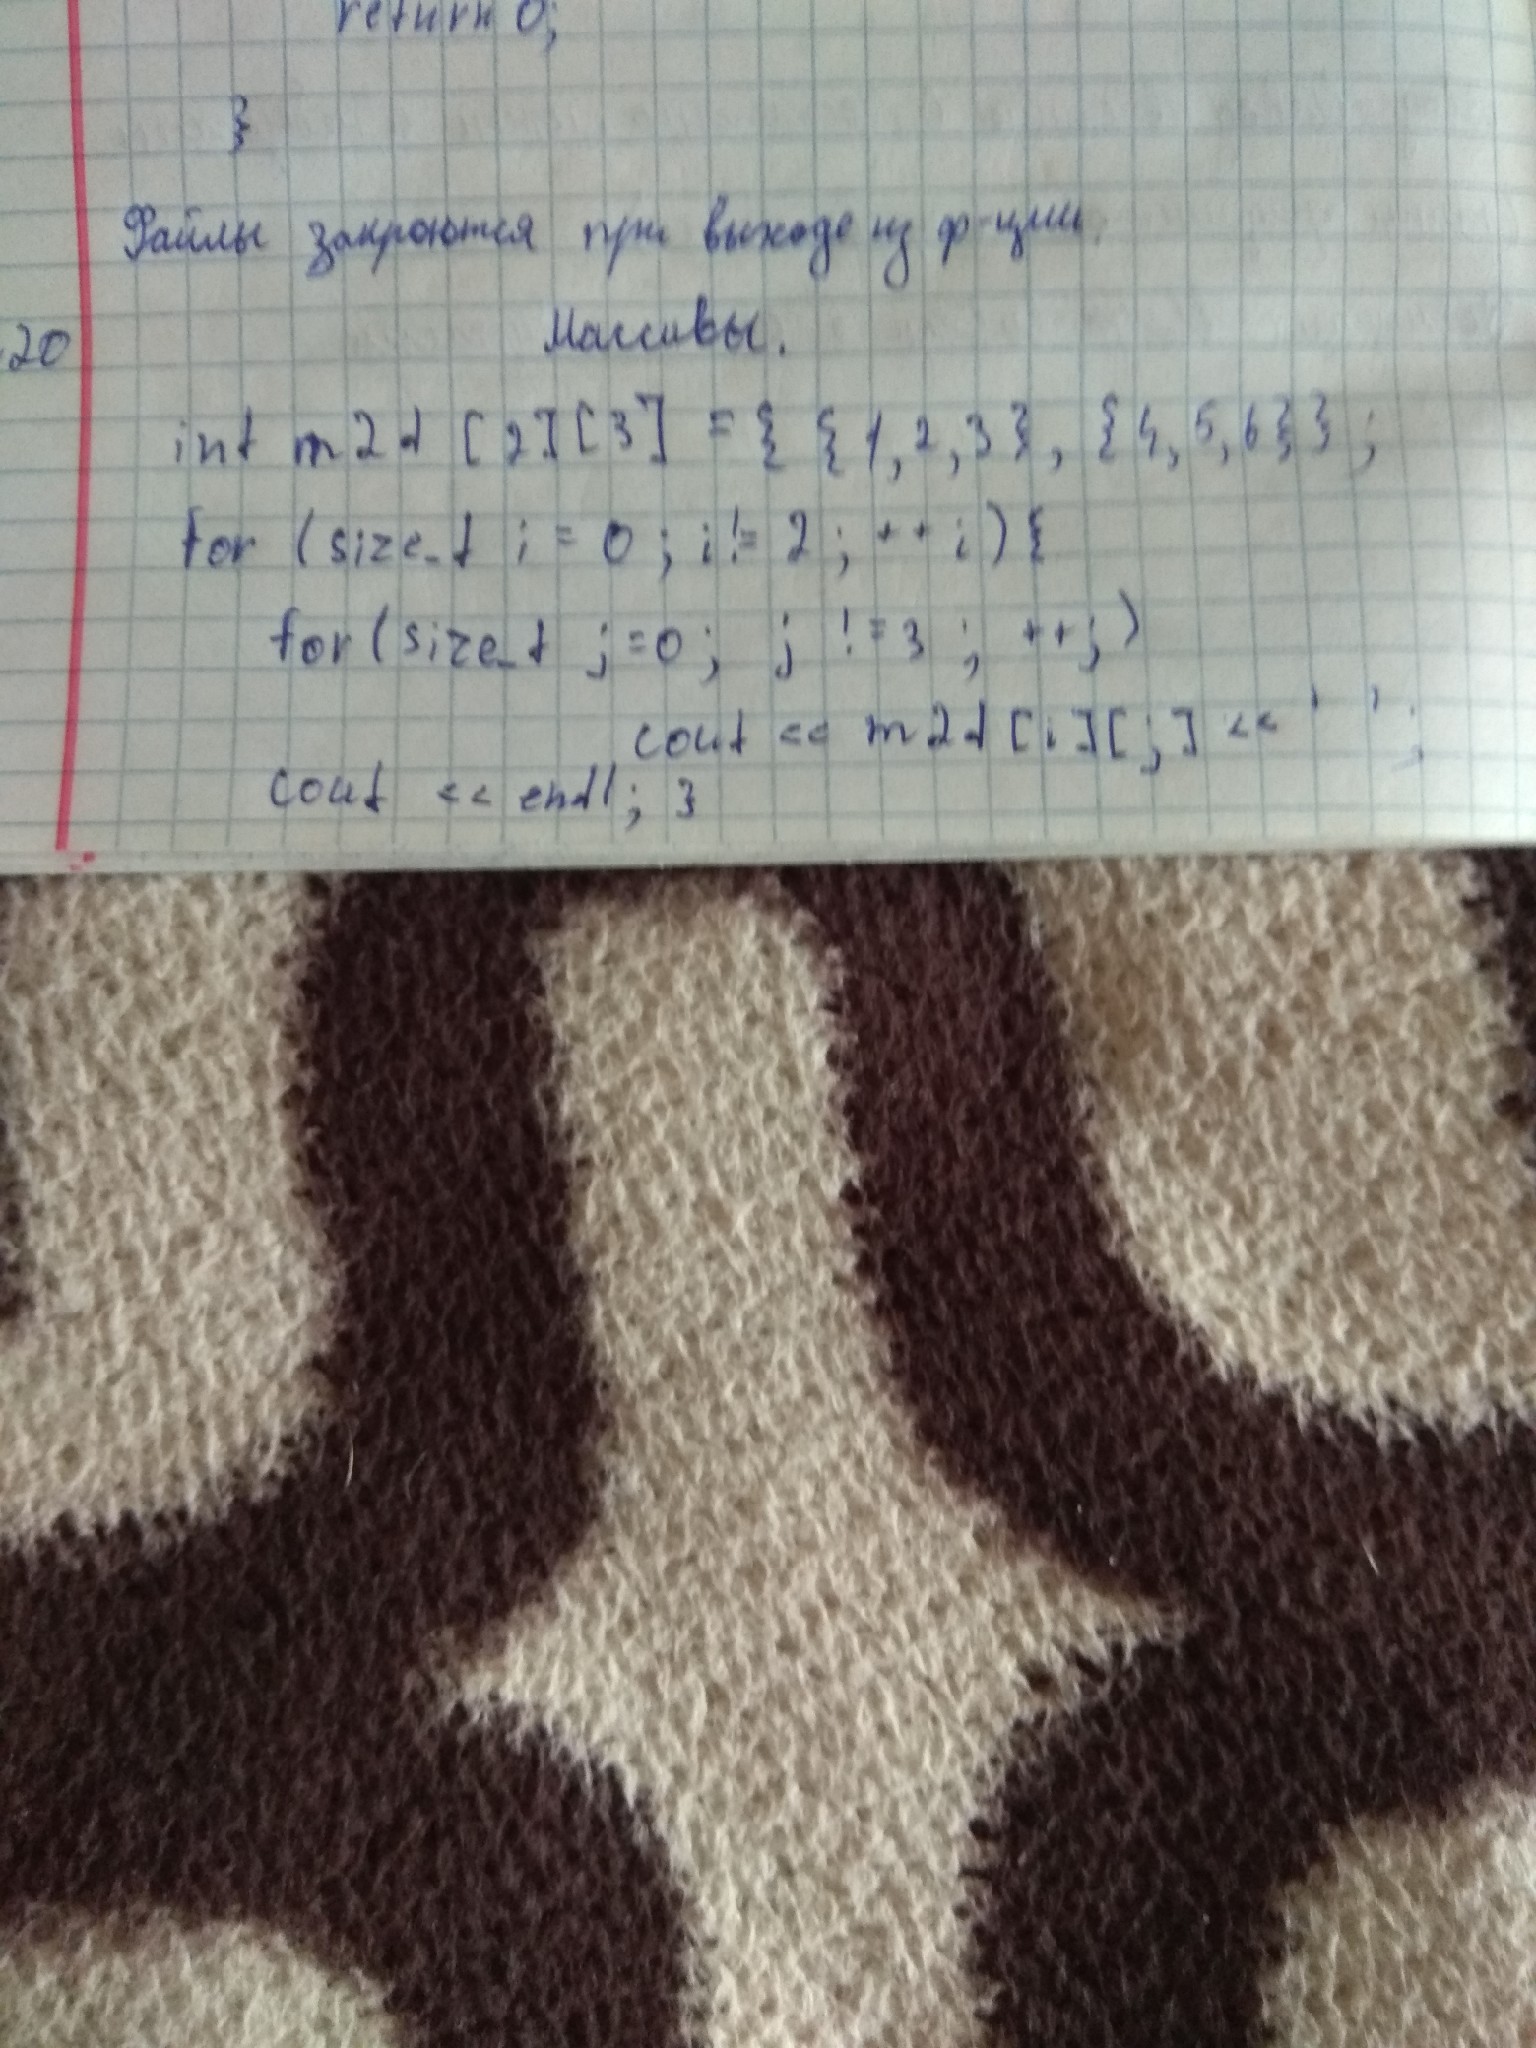 return 0;
}
Файлы закроются при выходе из ф-ции.
.20 Массивы.
int m2d [2][3] = { {1,2,3}, {4,5,6}};
for (size_t i = 0; i != 2; ++i){
for(size_t j=0; j !=3; ++j)
cout << m2d[i][j] << ' ';
cout << endl; }